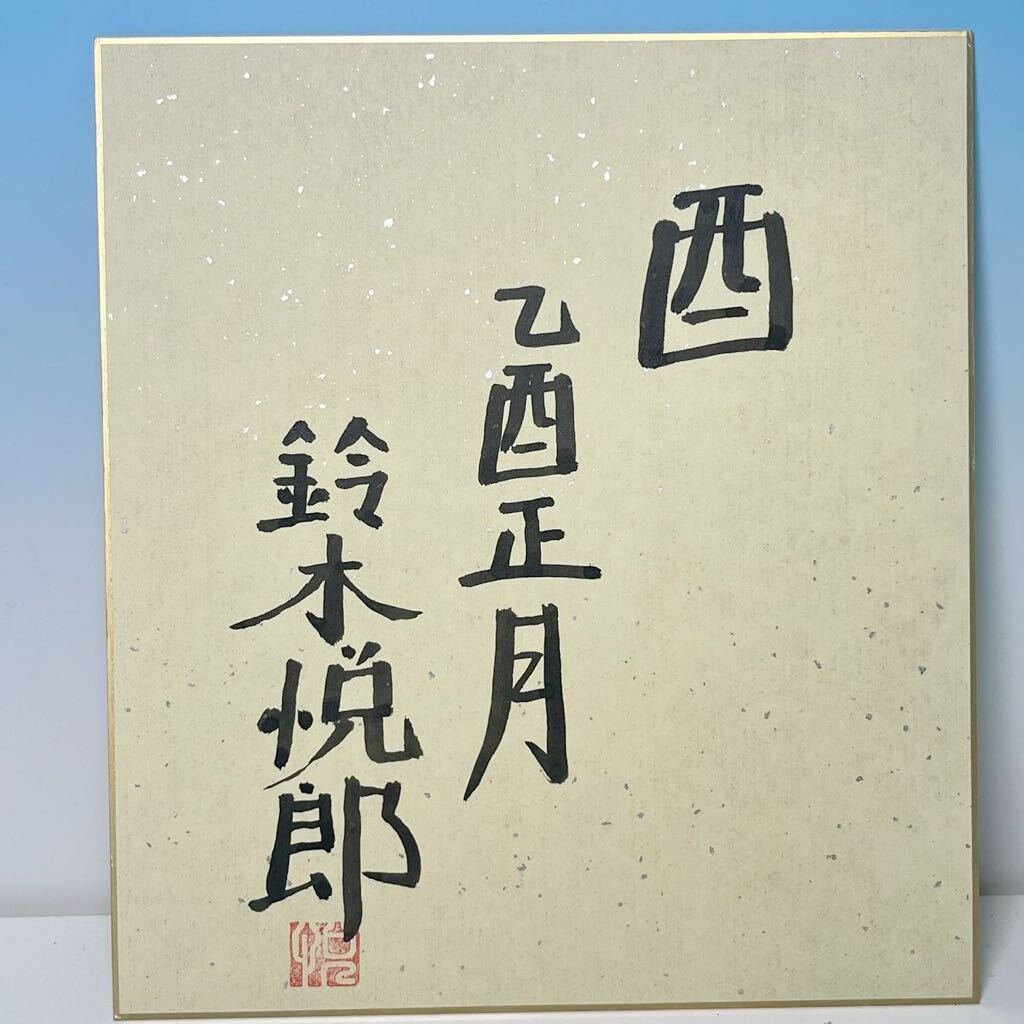 酉
乙酉正月
鈴木悦郎
悦